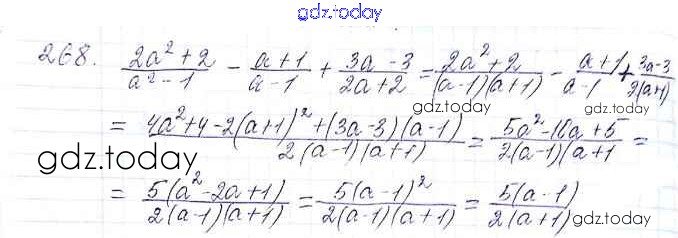 gdz.today
268. (2a²+2)/(a²-1) - (a+1)/(a-1) + (3a-3)/(2a+2) = (2a²+2)/((a-1)(a+1)) - (a+1)/(a-1) + (3a-3)/(2(a+1))
gdz.today
gdz.today
= (4a²+4-2(a+1)²+(3a-3)(a-1))/(2(a-1)(a+1)) = (5a²-10a+5)/(2(a-1)(a+1) =
gdz.today
gdz.today
= 5(a²-2a+1)/(2(a-1)(a+1)) = 5(a-1)²/(2(a-1)(a+1)) = 5(a-1)/(2(a+1))
gdz.today
gdz.today